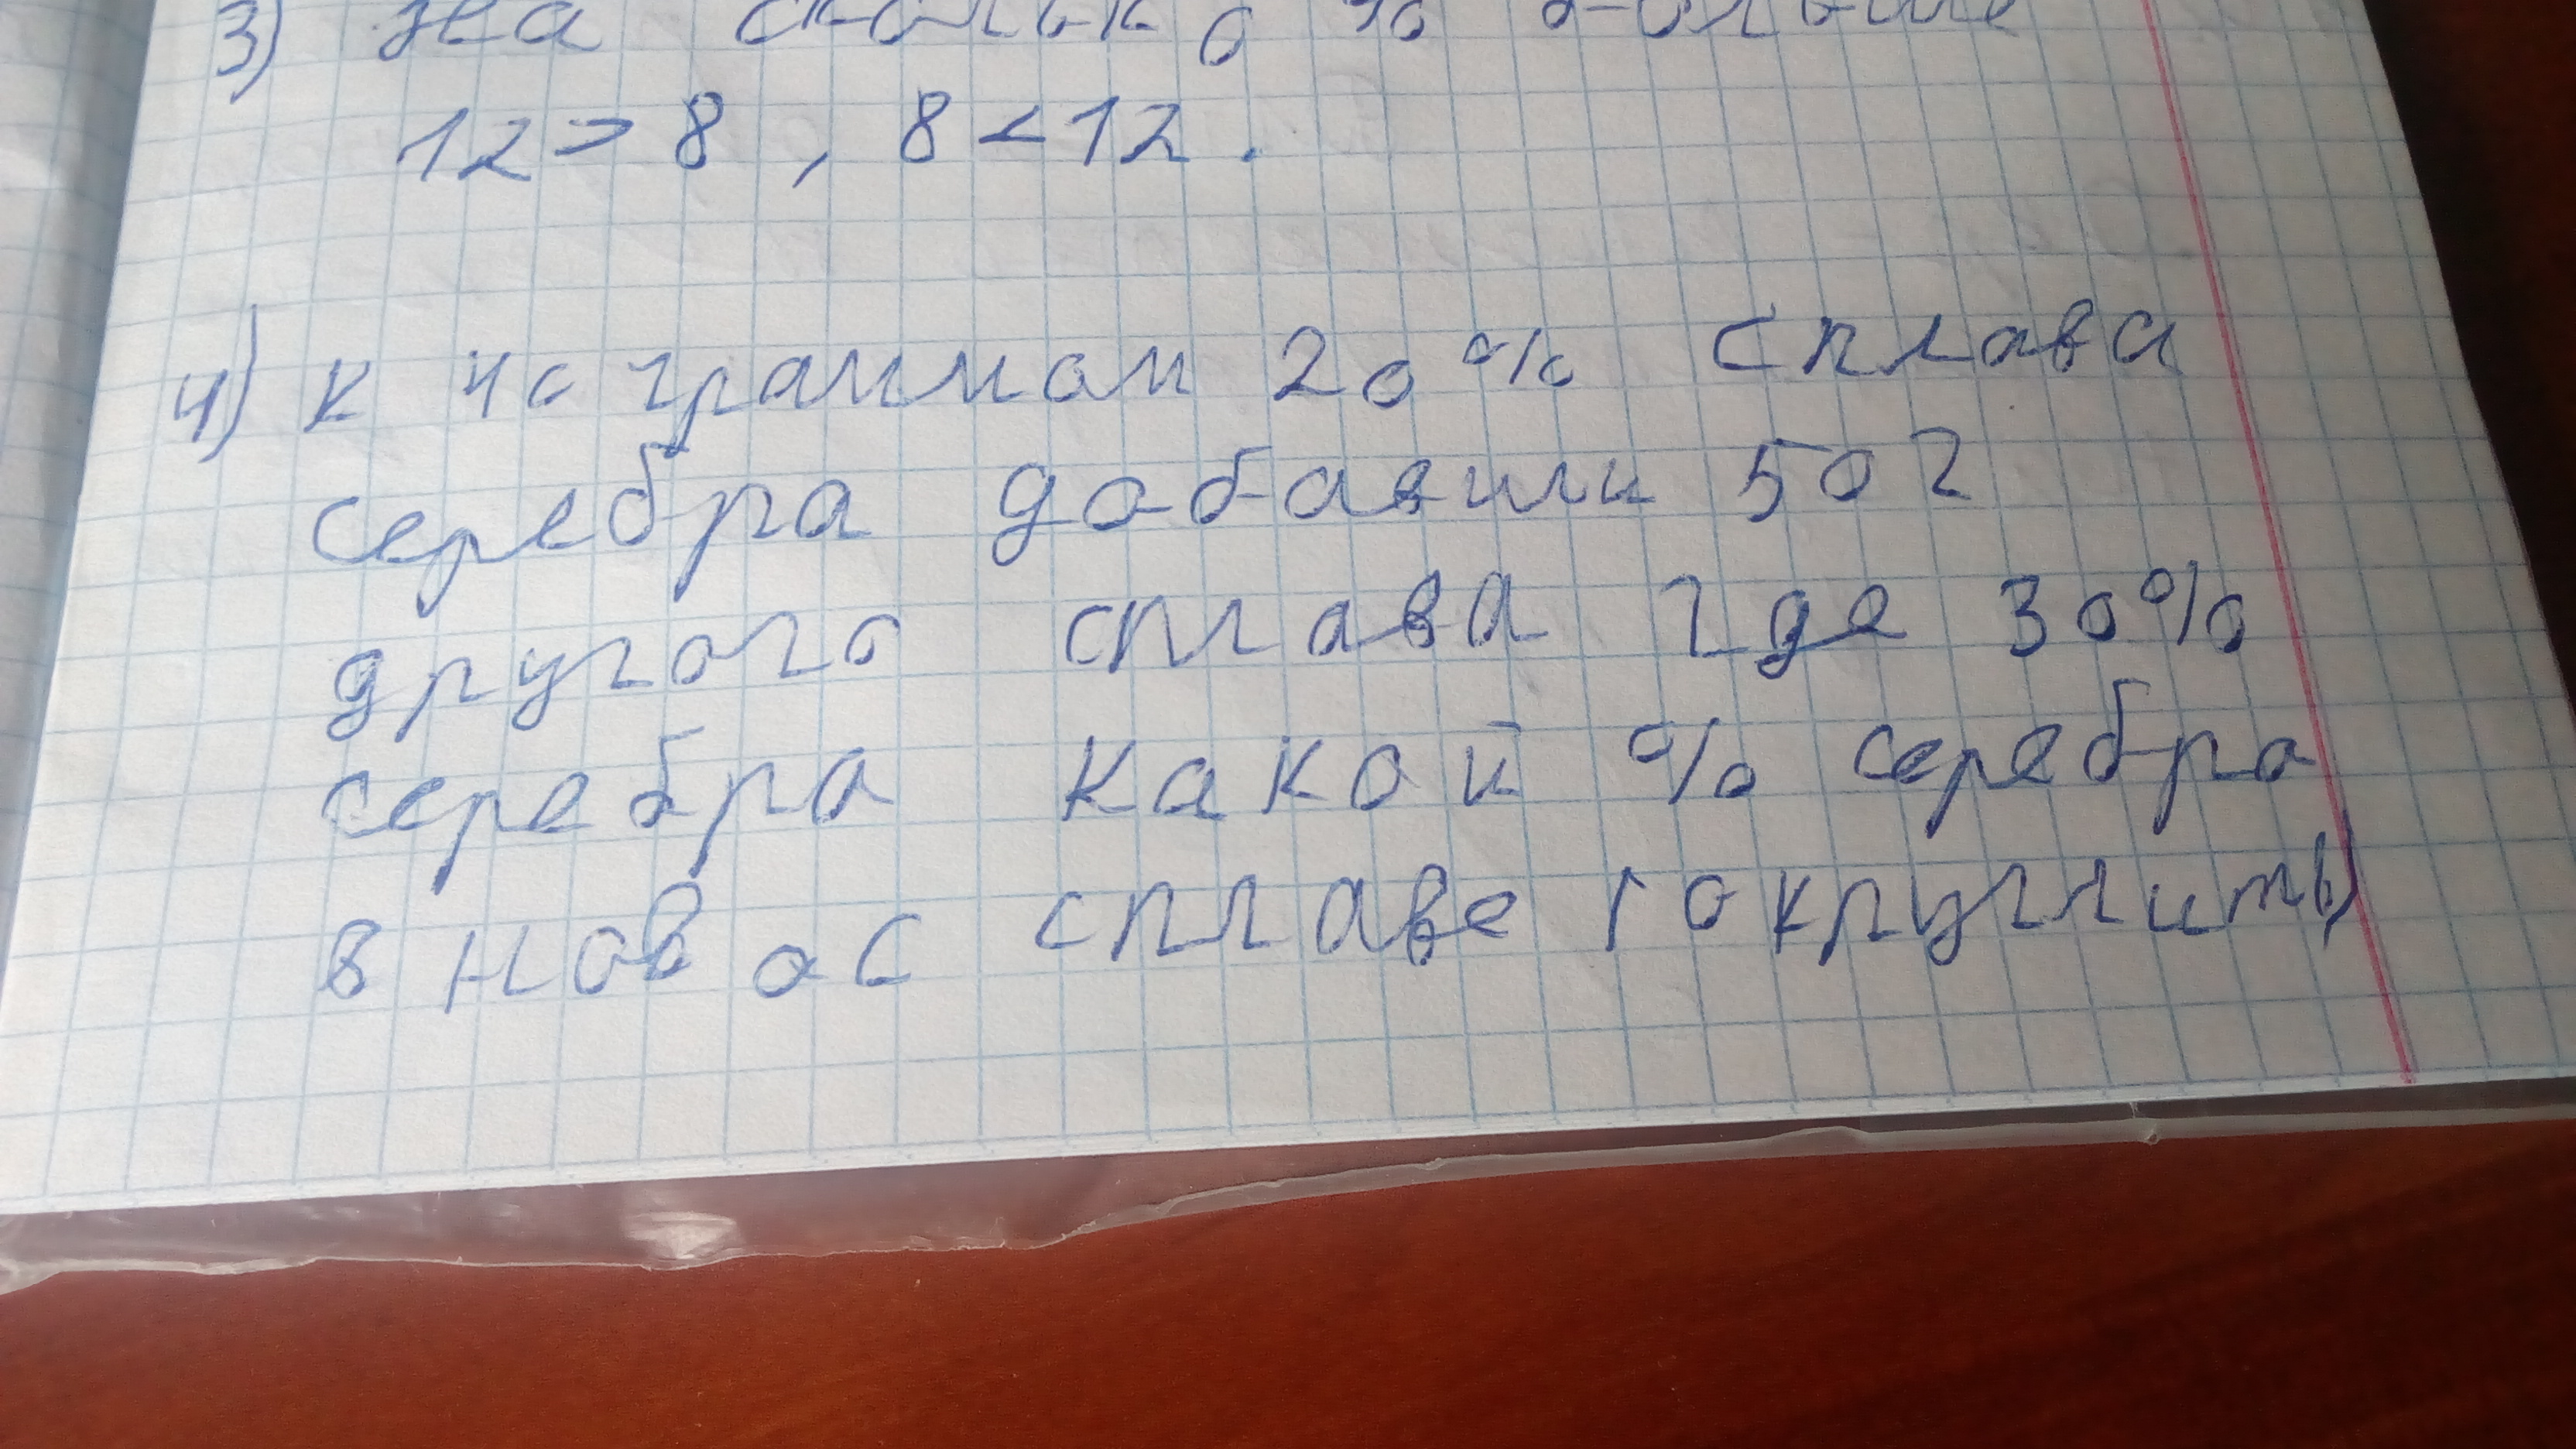 3) на сколько % больше
12 > 8 , 8 < 12 .
4) к 40 граммам 20% сплава
серебра добавили 50 г
другого сплава где 30%
серебра какой % серебра
в новос сплаве (округлить)